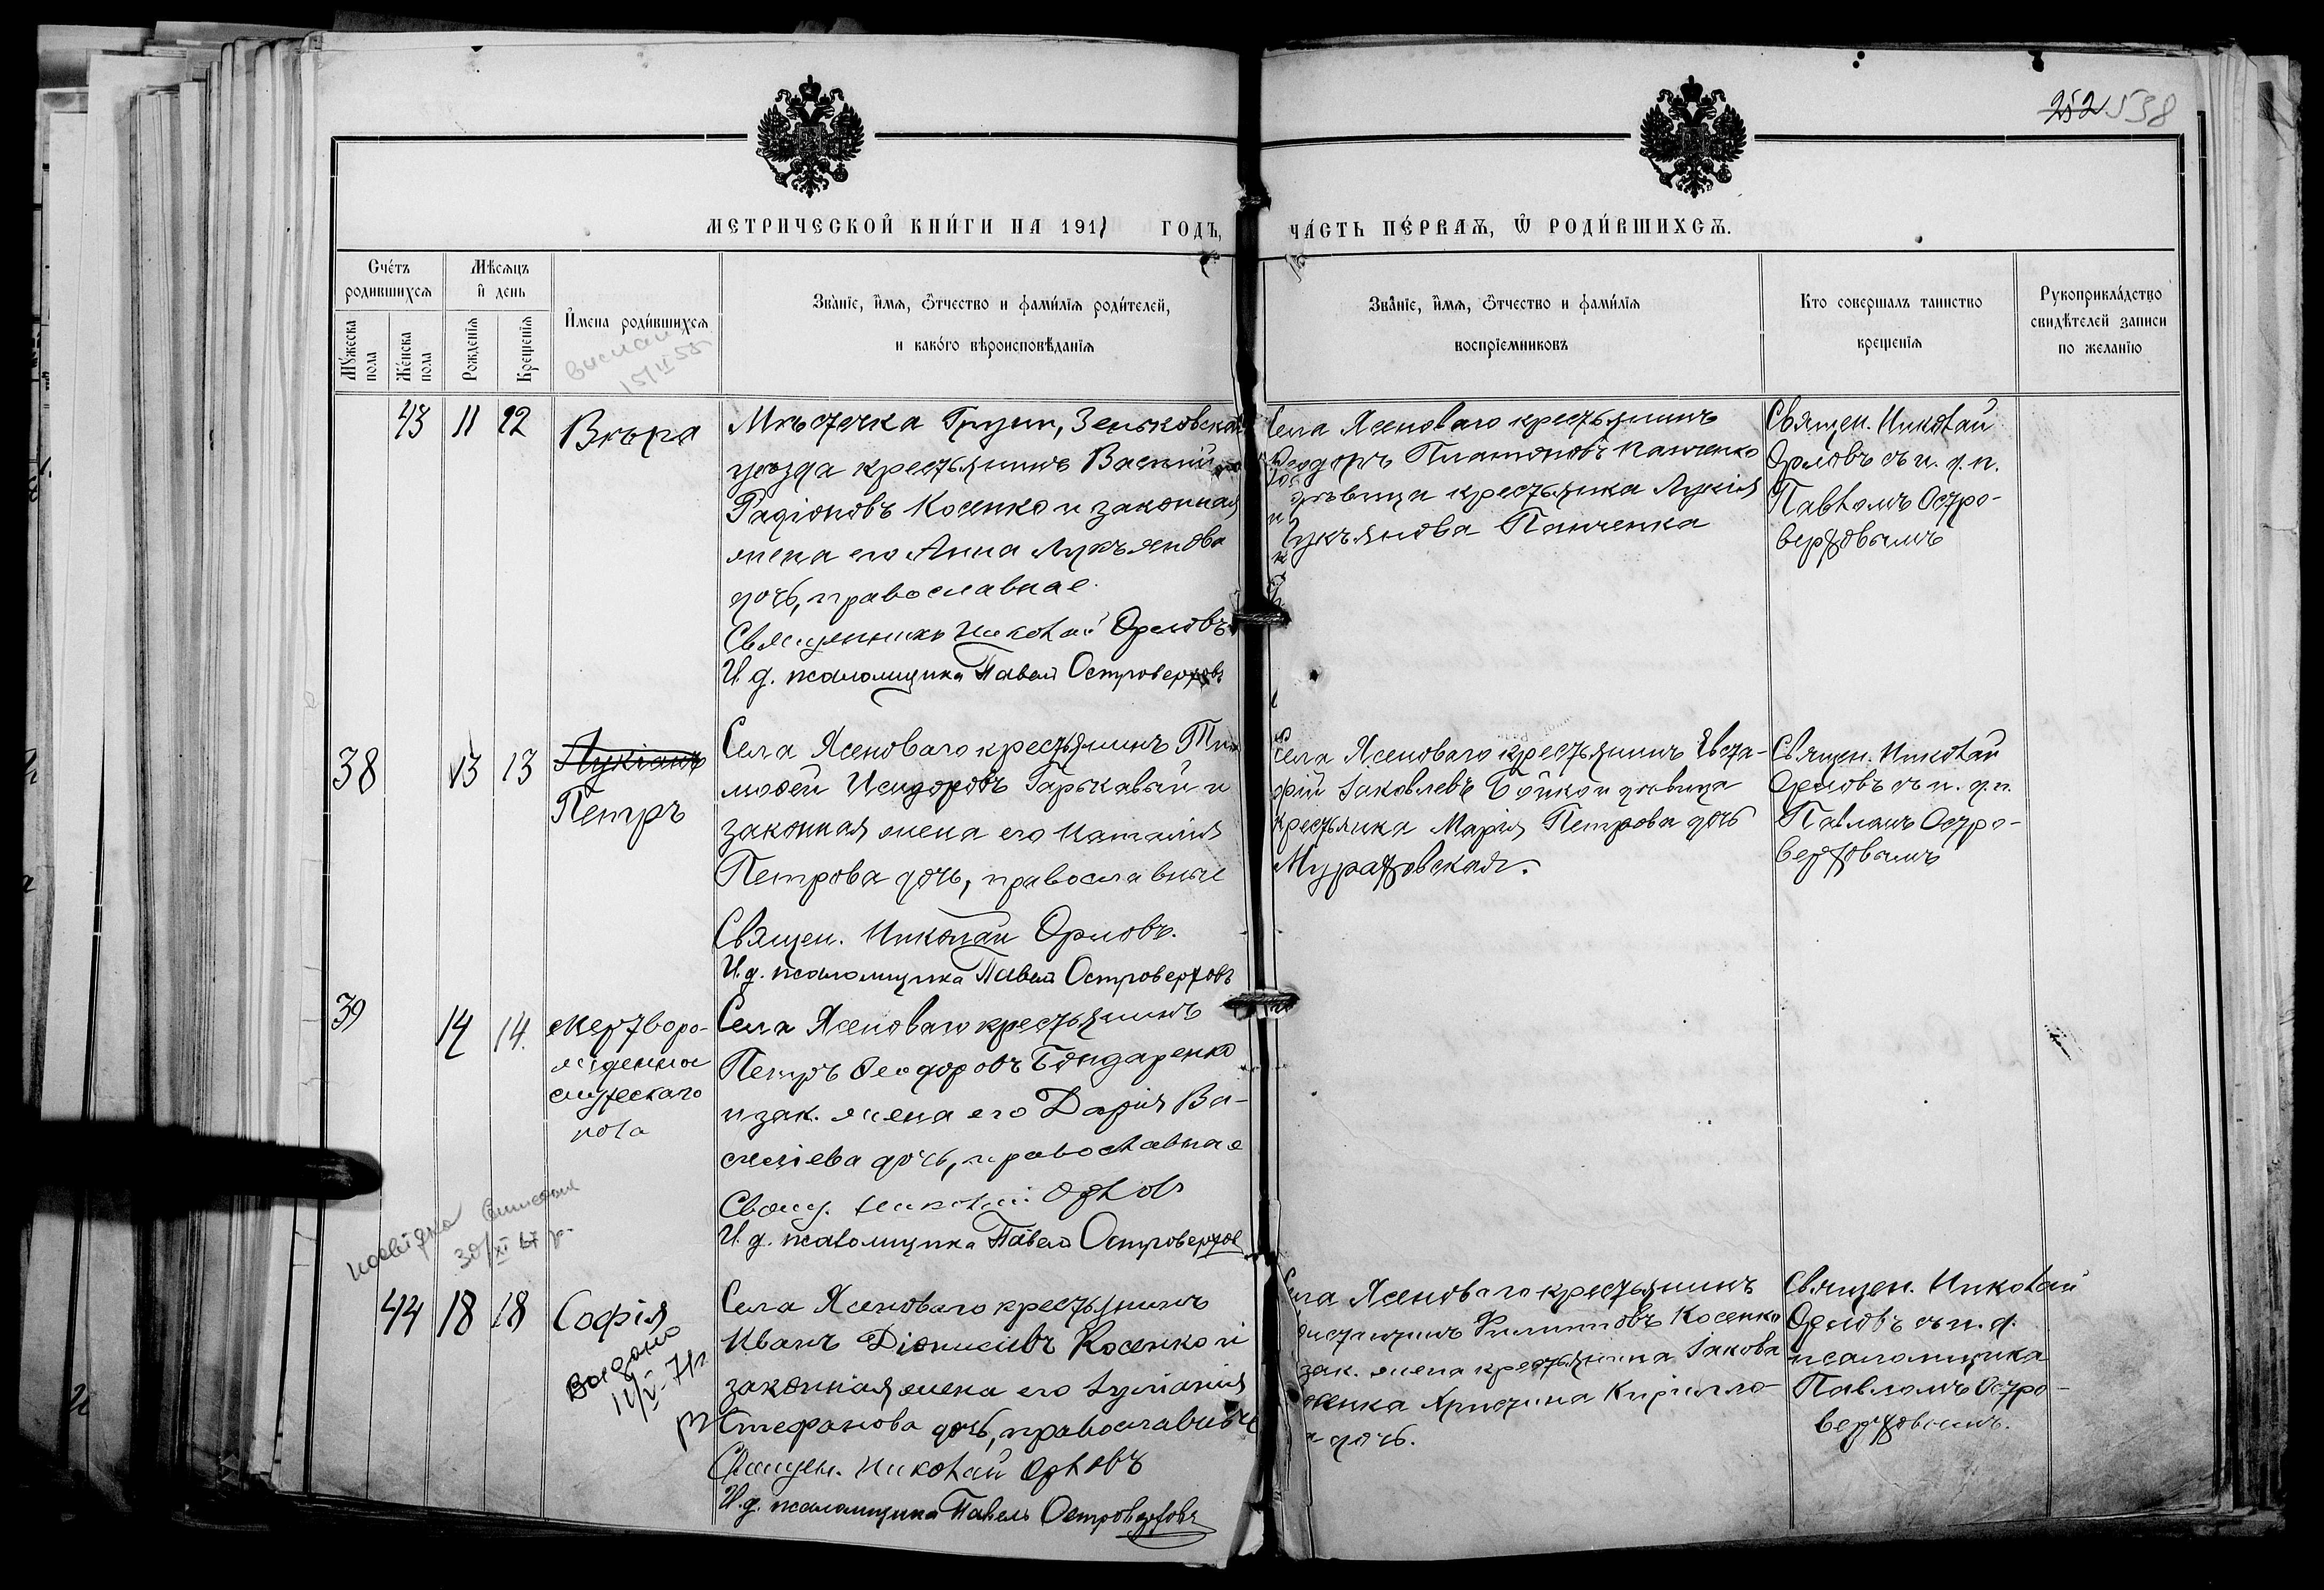 252 538
МЕТРИЧЕСКОЙ КНИГИ НА 1911 ГОДЪ, ЧАСТЬ ПЕРВАЯ, Ѿ РОДИВШИХСЯ.
Счетъ родившихся
Мужеска пола
Женска пола
Мѣсяцъ и день
Рожденія
Крещенія
Имена родившихся
15/II 55
Званіе, имя, отчество и фамилія родителей,
и какого вѣроисповѣданія
Званіе, имя, отчество и фамилія
воспріемниковъ
Кто совершалъ таинство
крещенія
Рукоприкладство
свидѣтелей записи
по желанію
43 11 12
Вѣра
Мѣстечка Груни, Зеньковскаго
уѣзда крестьянинъ Василій
Радіоновъ Косенко и законная
жена его Анна Лукъянова
дочь, православные.
Священникъ Николай Орловъ
И. д. псаломщика Павелъ Островерховъ
Села Ясеноваго крестьянинъ
Ѳеодоръ Платоновъ Панченко
дѣвица крестьянка Лукія
Лукъянова Панченка
Священ. Николай
Орловъ съ и. д. п.
Павломъ Остро-
верховымъ
38 13 13
Лукіанъ
Петръ
Села Ясеноваго крестьянинъ Ти-
моѳей Исидоровъ Гаркавый и
законная жена его Наталія
Петрова дочь, православные
Священ. Николай Орловъ.
И. д. псаломщика Павелъ Островерховъ
Села Ясеноваго крестьянинъ Евста-
фій Іаковлевъ Бойко и дѣвица
крестьянка Марія Петрова дочь
Мураховская.
Священ. Николай
Орловъ съ и. д. п.
Павломъ Остро-
верховымъ
39 14 14.
Мертворо-
жденное
мужескаго
пола
Села Ясеноваго крестьянинъ
Петръ Ѳеодоровъ Бондаренко
и зак. жена его Дарія Ва-
силіева дочь, православные
Свящ. Николай Орловъ
И. д. псаломщика Павелъ Островерховъ
30/XI 67 р.
44 18 18
Софія
Видано
11/V-71г
Села Ясеноваго крестьянинъ
Иванъ Діонисіевъ Косенко и
законная жена его Іуліанія
Стефанова дочь, православные
Священ. Николай Орловъ
И. д. псаломщика Павелъ Островерховъ
Села Ясеноваго крестьянинъ
Филипповъ Косенко
зак. жена крестьянина Іакова
Христина Кирилло-
дочь.
Священ. Николай
Орловъ съ и. д.
псаломщика
Павломъ Остро-
верховымъ.